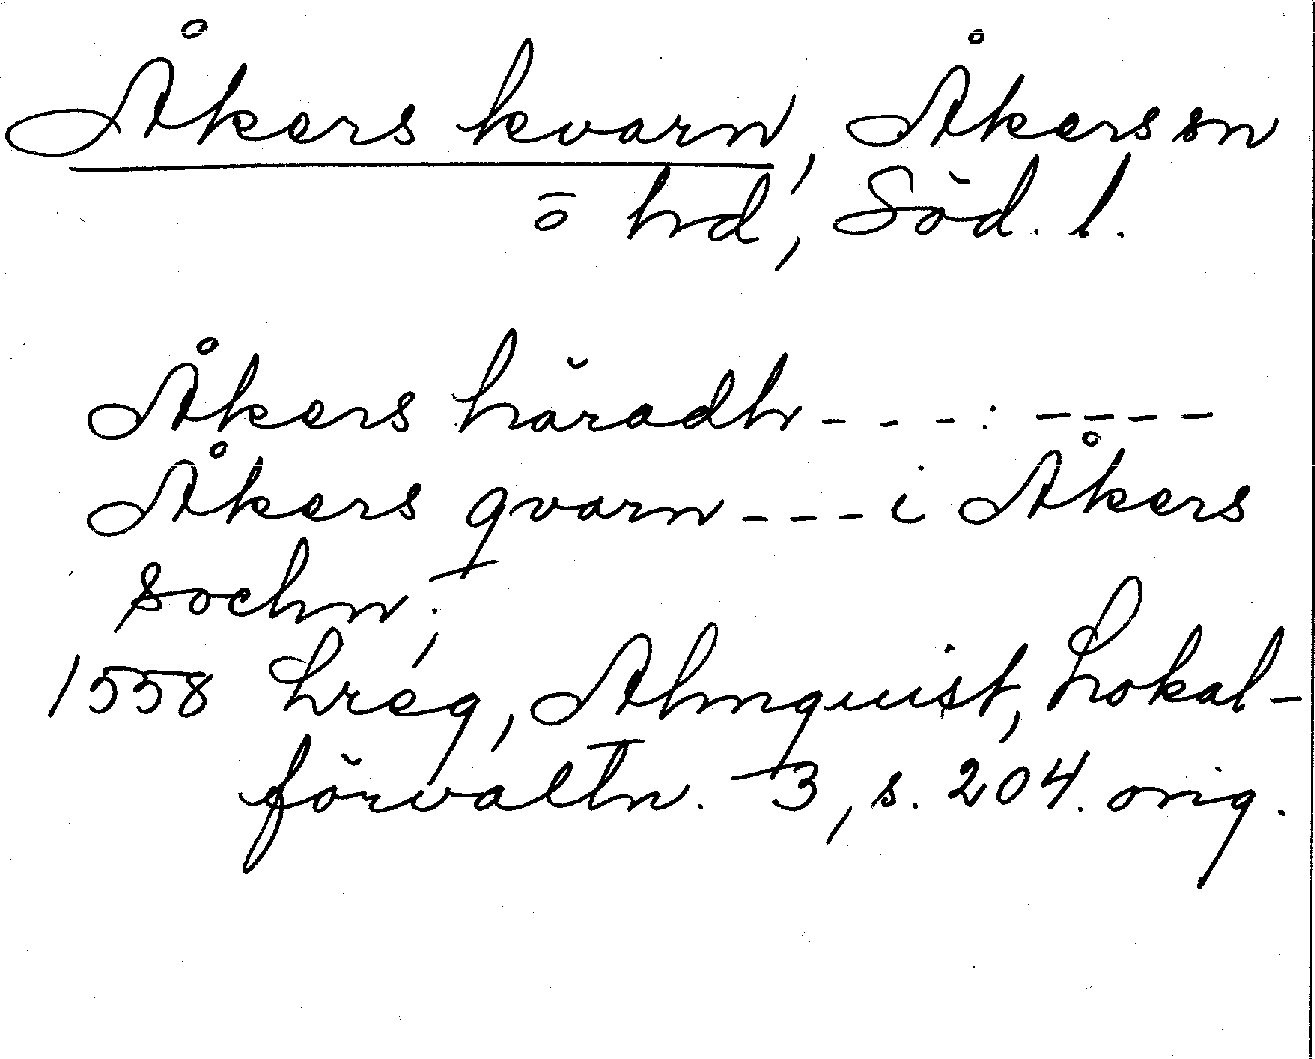 Åkers kvarn, Åkers sn
o hd, Söd. l.
Åkers häradh - - - : - - - -
Åkers qvarn - - - i Åkers
sochn;
1558 Lreg, Almquist, Lokal-
förvaltn. 3, s. 204. orig.